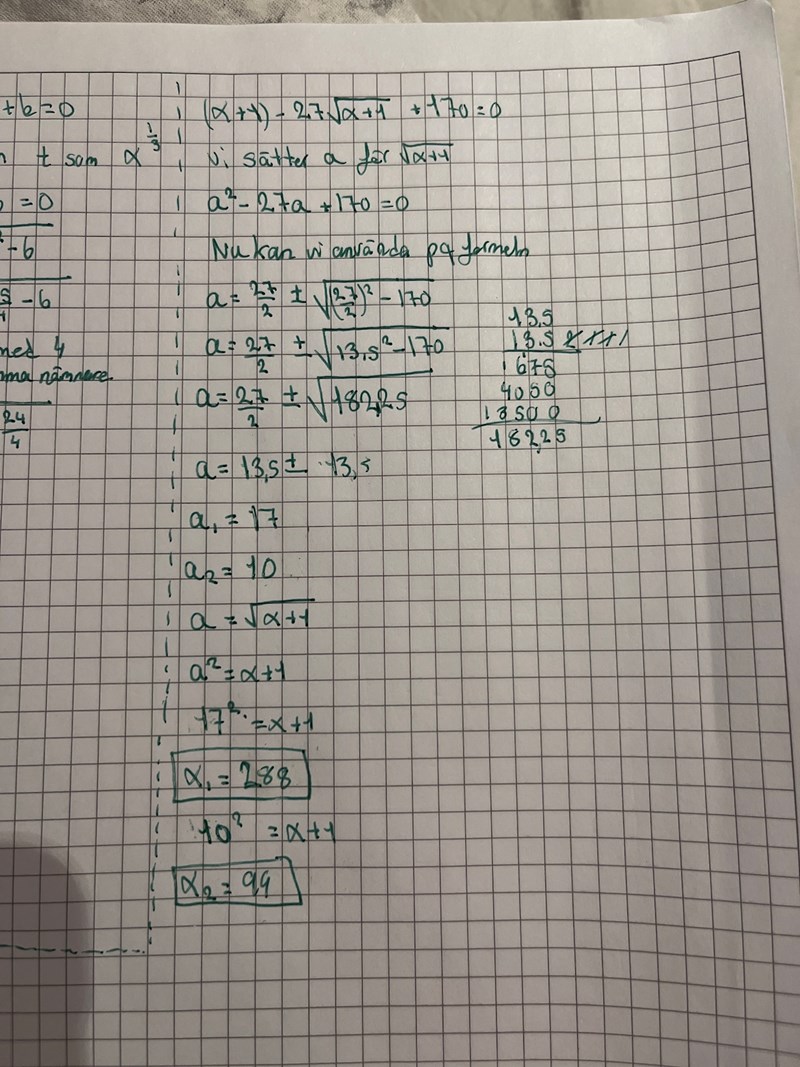 +6=0
t som x^(1/3)
=0
-6
-6
med 4
nämnare.
24/4
(x+1) - 27√(x+1) + 170 = 0
Vi sätter a för √(x+1)
a² - 27a + 170 = 0
Nu kan vi använda pq formeln
a = 27/2 ± √((27/2)² - 170)
a = 27/2 ± √(13,5² - 170)
a = 27/2 ± √182,25
a = 13,5 ± 13,5
a₁ = 17
a₂ = 10
a = √(x+1)
a² = x+1
17² = x+1
x₁ = 288
10² = x+1
x₂ = 99
13,5
13,5
1675
4050
13500
182,25